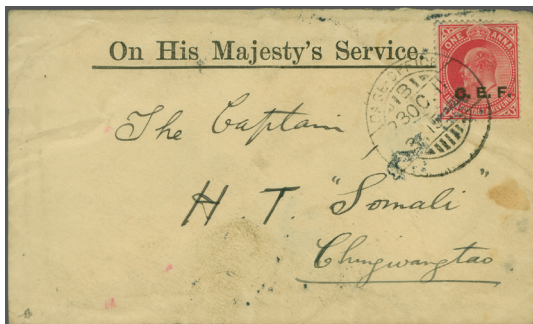 On His Majesty's Service.
ONE ANNA
C. E. F.
BASE OFFICE
B
30 OC
The Captain
H. T. "Somali"
Chingwangtao